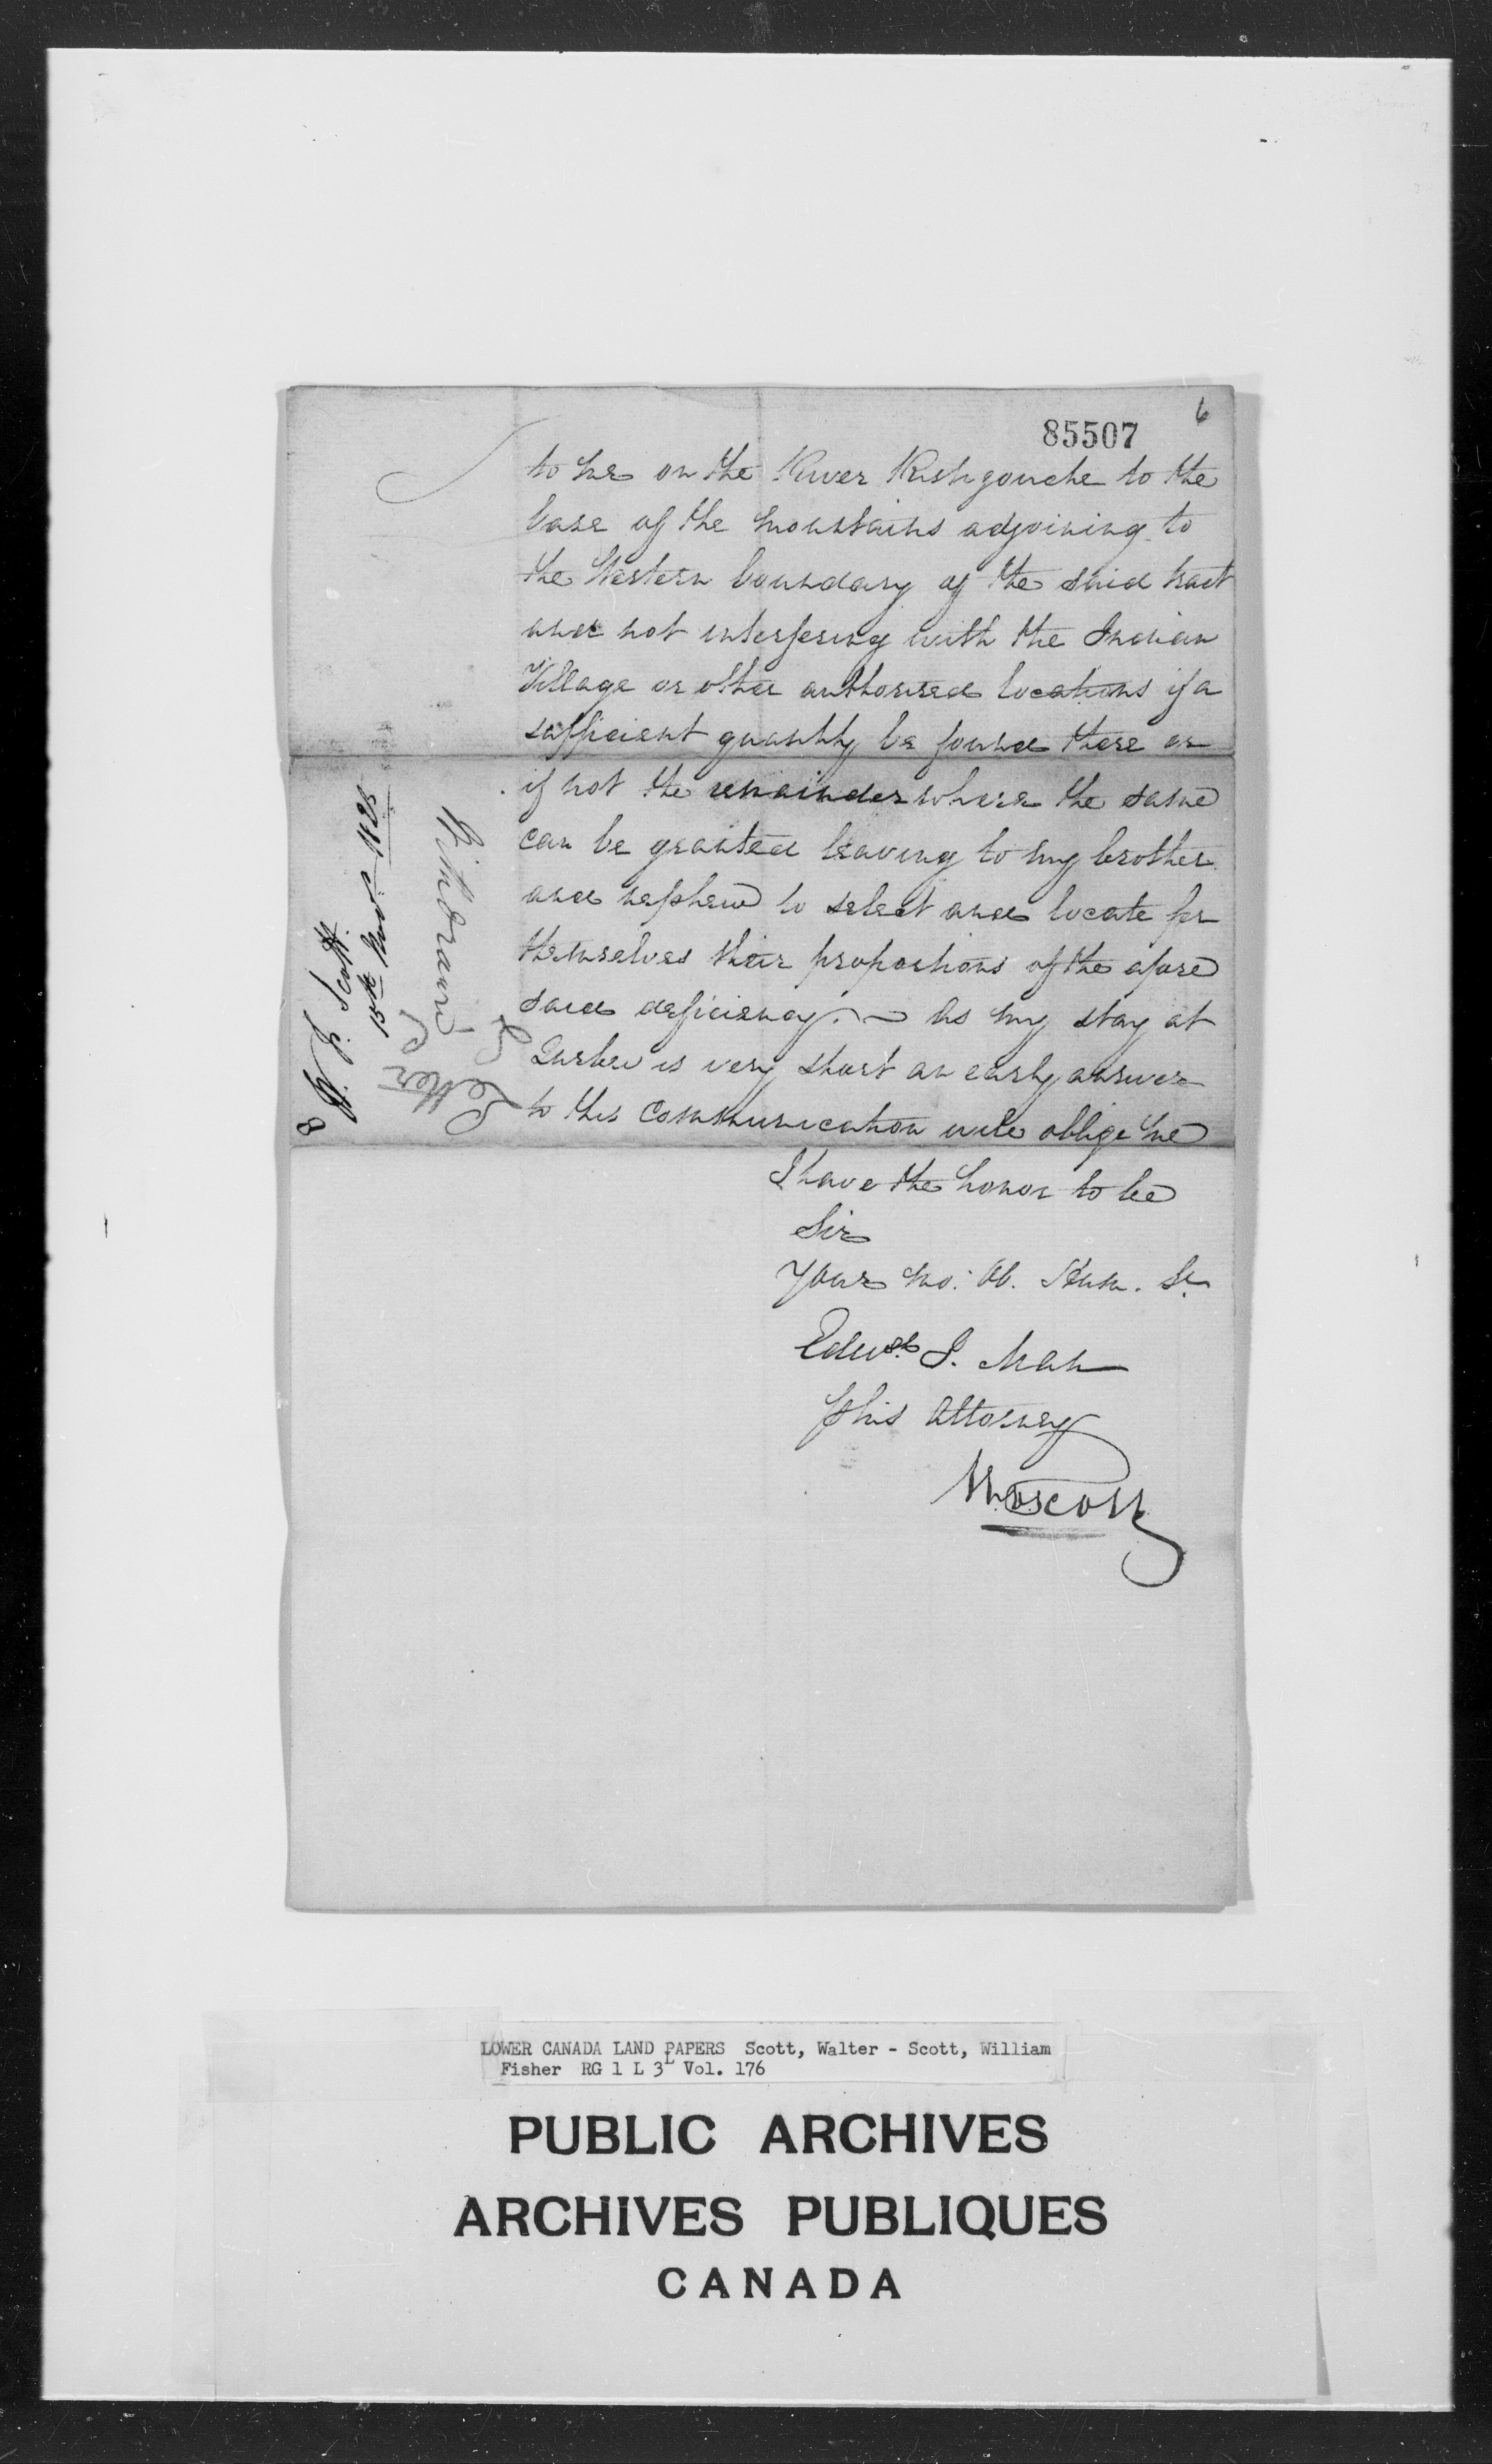 6
85507
to me on the River Ristigouche to the
base of the mountains adjoining to
the Western boundary of the said tract
and not interfering with the Indian
Village or other authorised locations if a
sufficient quantity be found there or
if not the remainder where the same
can be granted leaving to my brother
and nephew to select and locate for
themselves their proportions of the afore
said deficiency. – As my stay at
Quebec is very short an early answer
to this communication will oblige me
I have the honor to be
Sir
Your mo: Ob. Hum. St.
Edwd. I. Mann
p his Attorney
Wm Scott
8
Scott
15th Novr. 1825
Withdraws
Letter
LOWER CANADA LAND PAPERS Scott, Walter - Scott, William
Fisher RG 1 L 3L Vol. 176
PUBLIC ARCHIVES
ARCHIVES PUBLIQUES
CANADA